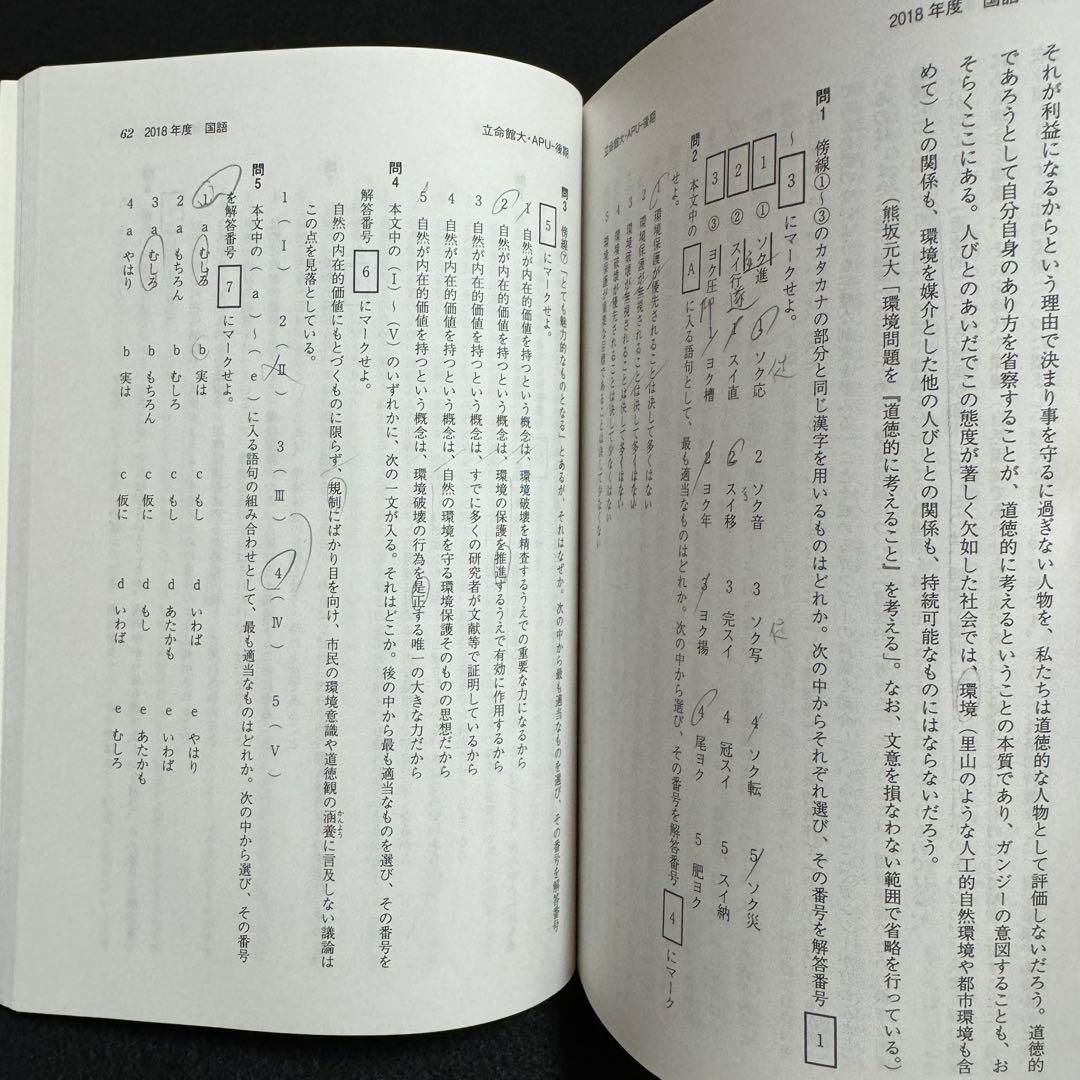 2018年度 国語
それが利益になるからという理由で決まり事を守るに過ぎない人物を、私たちは道徳的な人物として評価しないだろう。道徳的
であろうとして自分自身のあり方を省察することが、道徳的に考えるということの本質であり、ガンジーの意図することも、お
そらくここにある。人びとのあいだでこの態度が著しく欠如した社会では、環境（里山のような人工的自然環境や都市環境も含
めて）との関係も、環境を媒介とした他の人びととの関係も、持続可能なものにはならないだろう。
（熊坂元大「環境問題を『道徳的に考えること』を考える」。なお、文意を損なわない範囲で省略を行っている。）
問1 傍線①～③のカタカナの部分と同じ漢字を用いるものはどれか。次の中からそれぞれ選び、その番号を解答番号 1
～ 3 にマークせよ。
1 ① ソク進 1 ソク応 2 ソク音 3 ソク写 4 ソク転 5 ソク災
促
足
2 ② スイ行 1 スイ直 2 スイ移 3 完スイ 4 冠スイ 5 スイ納
遂
3 ③ ヨク圧 1 ヨク槽 2 ヨク年 3 ヨク揚 4 尾ヨク 5 肥ヨク
問2 本文中の A に入る語句として、最も適当なものはどれか。次の中から選び、その番号を解答番号 4 にマーク
せよ。
1 環境保護が優先されることは決して多くはない
2 環境保護が無視されることは決して多くはない
3 環境破壊が無視されることは決して多くはない
4 環境破壊が優先されることは決して少なくはない
5 環境保護が重要な目標であることは決して少なくない
立命館大・APU-後期
62 2018年度 国語
立命館大・APU-後期
問3 傍線⑦「とても魅力的なものとなる」とあるが、それはなぜか。次の中から最も適当なものを選び、その番号を解答番号
5 にマークせよ。
1 自然が内在的価値を持つという概念は、環境破壊を精査するうえでの重要な力になるから
2 自然が内在的価値を持つという概念は、環境の保護を推進するうえで有効に作用するから
3 自然が内在的価値を持つという概念は、すでに多くの研究者が文献等で証明しているから
4 自然が内在的価値を持つという概念は、自然の環境を守る環境保護そのものの思想だから
5 自然が内在的価値を持つという概念は、環境破壊の行為を是正する唯一の大きな力だから
問4 本文中の（Ⅰ）～（Ⅴ）のいずれかに、次の一文が入る。それはどこか。後の中から最も適当なものを選び、その番号を
解答番号 6 にマークせよ。
自然の内在的価値にもとづくものに限らず、規制にばかり目を向け、市民の環境意識や道徳観の涵養に言及しない議論は
かんよう
この点を見落としている。
1（Ⅰ） 2（Ⅱ） 3（Ⅲ） 4（Ⅳ） 5（Ⅴ）
問5 本文中の（a）～（e）に入る語句の組み合わせとして、最も適当なものはどれか。次の中から選び、その番号
を解答番号 7 にマークせよ。
1 a むしろ b 実は c もし d いわば e やはり
2 a もちろん b むしろ c もし d あたかも e いわば
3 a むしろ b もちろん c 仮に d もし e あたかも
4 a やはり b 実は c 仮に d いわば e むしろ